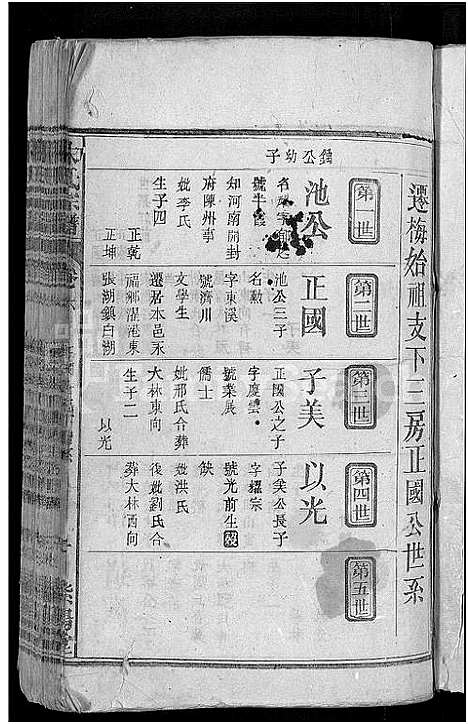 遷梅始祖支下三房正國公世系
第一世
公幼子
池公
號半霞
知河南開封
府陳州事
妣李氏
生子四
正乾
正坤
第二世
正國
池公三子
名勲
字東溪
號濟川
文學生
遷居本邑永
福鄉濯港東
張湖鎮白湖
第三世
子美
正國公之子
字慶雲
號業展
儒士
妣邢氏合葬
大林東向
生子二
以光
第四世
以光
子美公長子
字耀宗
號光前生歿
缺
妣洪氏
後妣劉氏合
葬大林酉向
第五世
氏宗譜
紫陽堂